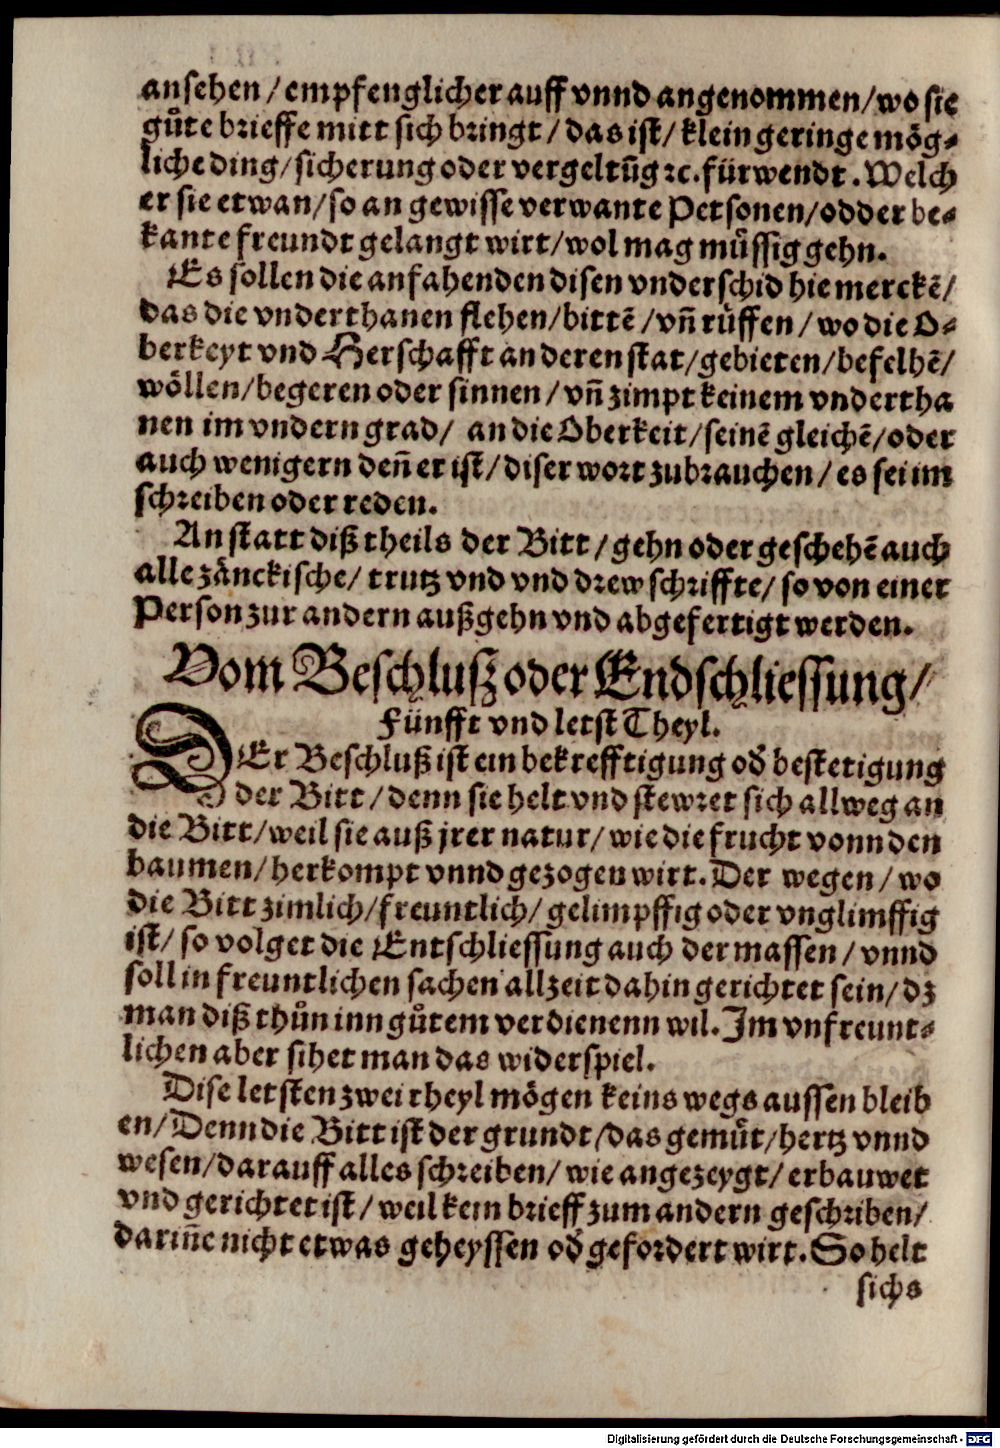 ansehen / empfenglicher auff vnnd angenommen / wo sie
gůte brieffe mitt sich bringt / das ist / klein geringe mög-
liche ding / sicherung oder vergeltũg ꝛc. fürwendt. Welch
er sie etwan / so an gewisse verwante Personen / odder be-
kante freundt gelangt wirt / wol mag müssig gehn.
Es sollen die anfahenden disen vnderschid hie merckẽ /
das die vnderthanen flehen / bittẽ / vñ rüffen / wo die O-
berkeyt vnd Herschafft an deren stat / gebieten / befelhẽ /
wöllen / begeren oder sinnen / vñ zimpt keinem vndertha
nen im vndern grad / an die Oberkeit / seinẽ gleichẽ / oder
auch wenigern deñ er ist / diser wort zubrauchen / es sei im
schreiben oder reden.
An statt diß theils der Bitt / gehn oder geschehẽ auch
alle zänckische / trutz vnd vnd drew schriffte / so von einer
Person zur andern außgehn vnd abgefertigt werden.
Vom Beschlusz oder Endschliessung /
Fünfft vnd letst Theyl.
DEr Beschluß ist ein bekrefftigung oď bestetigung
der Bitt / denn sie helt vnd stewret sich allweg an
die Bitt / weil sie auß jrer natur / wie die frucht vonn den
baumen / herkompt vnnd gezogen wirt. Der wegen / wo
die Bitt zimlich / freuntlich / gelimpffig oder vnglimffig
ist / so volget die Entschliessung auch der massen / vnnd
soll in freuntlichen sachen allzeit dahin gerichtet sein / dz
man diß thůn inn gůtem verdienenn wil. Im vnfreunt-
lichen aber sihet man das widerspiel.
Dise letsten zwei theyl mögen keins wegs aussen bleib
en / Denn die Bitt ist der grundt / das gemůt / hertz vnnd
wesen / darauff alles schreiben / wie angezeygt / erbauwet
vnd gerichtet ist / weil kein brieff zum andern geschriben /
dariñe nicht etwas geheyssen oď gefordert wirt. So helt
sichs
Digitalisierung gefördert durch die Deutsche Forschungsgemeinschaft - DFG